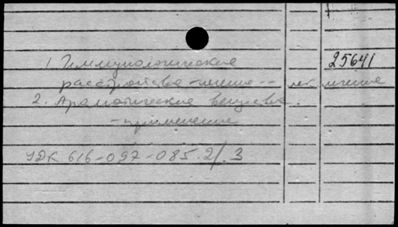 1. Иммунологические 25641
расстройства - лечение -- лечение
2. Ароматические вещества.
- применение
УДК 616-092-085.2/.3